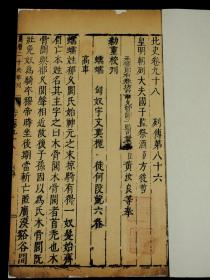 北史卷九十八　列傳第八十六
皇明朝列大夫國子監祭酒臣方從哲
等奉
勑重校刊
蠕蠕　匈奴宇文莫槐　徒何段就六眷
高車
蠕蠕姓郁久閭氏始神元之末掠騎有得一奴髮始齊
眉忘本姓名其主字之曰木骨閭木骨閭者首禿也木
骨閭與郁久閭聲相近故後子孫因以爲氏木骨閭既
壯免奴爲騎卒穆帝時坐後期當斬亡匿廣漠谿谷間